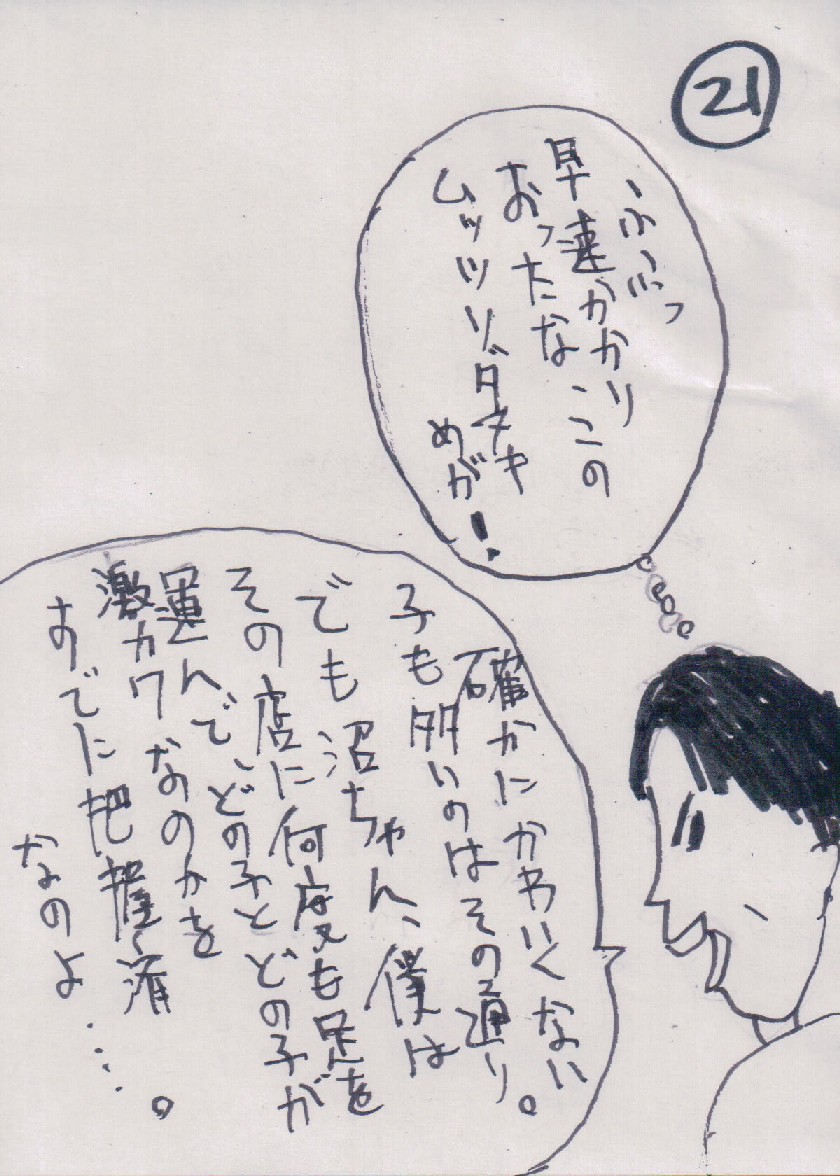 21
ふふっ
早速かかり
おったな、この
ムッツリダヌキ
めが!
確かにかわいくない
子も多いのはその通り。
でも沼ちゃん、僕は
その店に何度も足を
運んで、どの子とどの子が
激カワなのかを
すでに把握済
なのよ…。